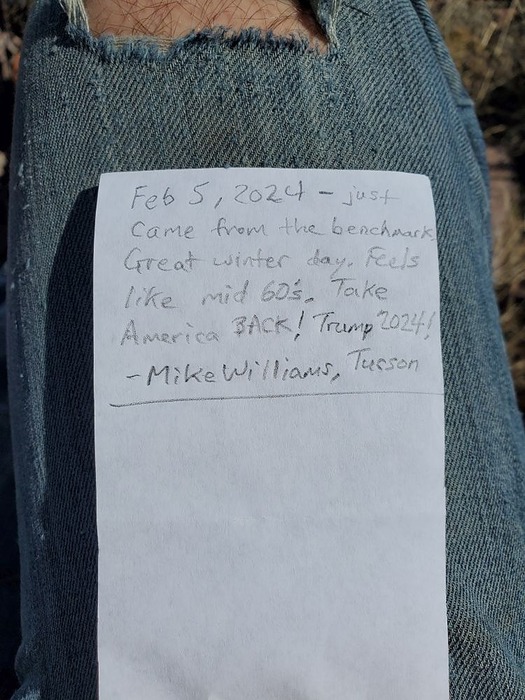 Feb 5, 2024 - just
Came from the benchmark.
Great winter day. Feels
like mid 60's. Take
America BACK! Trump 2024!
-Mike Williams, Tucson